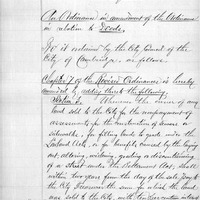 An Ordinance in amendment of the Ordinance
in relation to
Be it ordained by the City Council of the
City of Cambridge, as follows.
Chapter 7 of the Revised Ordinances is hereby
amended by adding thereto the following.
Whenever the sum of any
land sold to the City for the nonpayment of
assessments for the construction of sewers or
sidewalks, for filling lands to grade under the
Lowland Acts, or for benefits caused by laying
out, altering, widening, grading or discontinuing
of a street under the Betterment Act, shall
within two years from the day of the sale, pay to
the City Treasurer the sum for which the land
was sold to the City, with